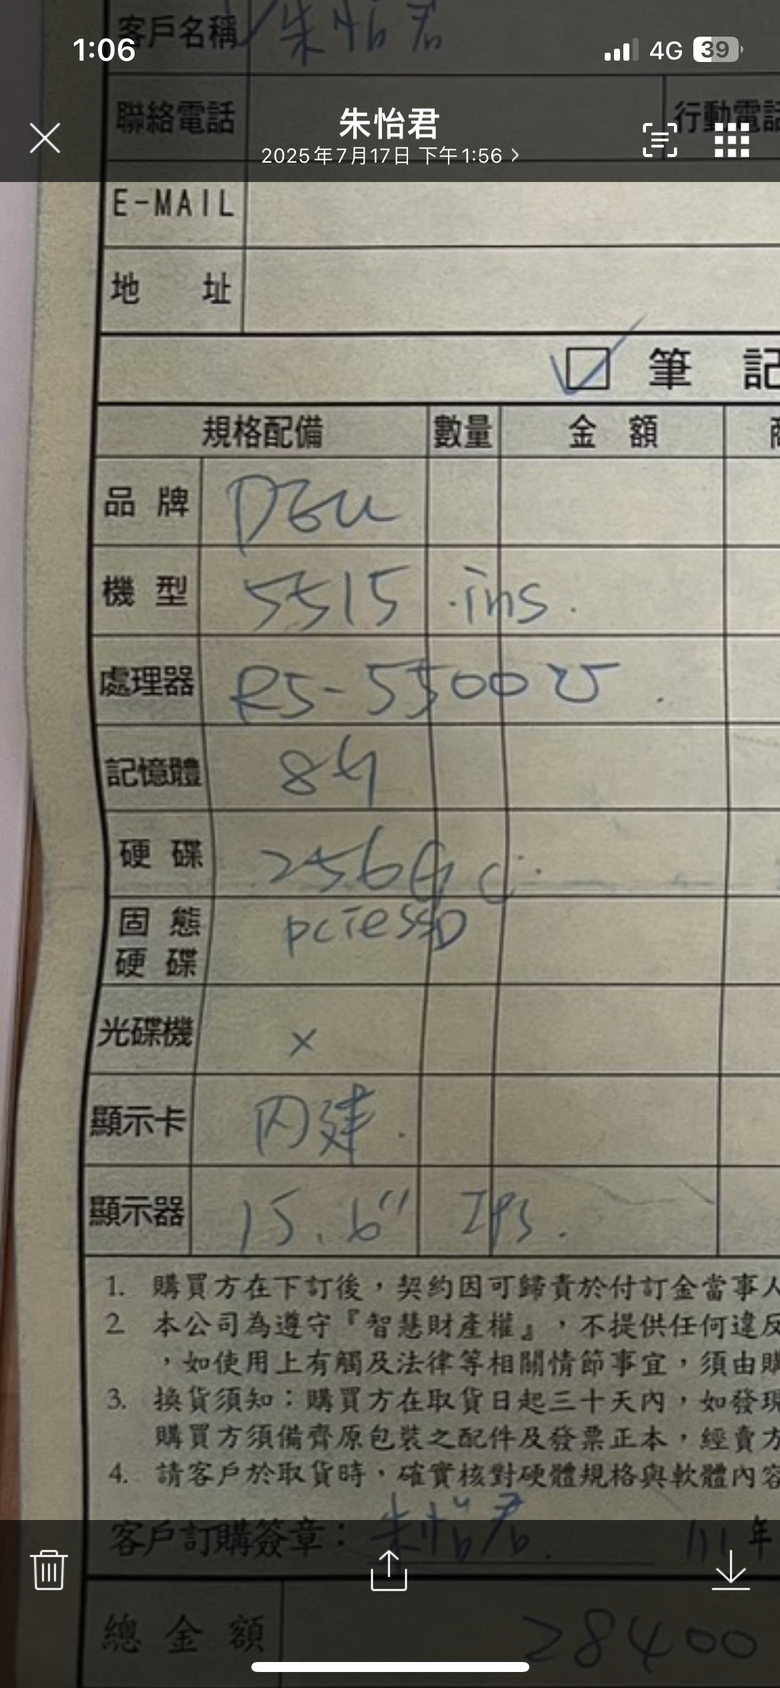 客戶名稱 朱怡君
1:06 4G 39
聯絡電話 行動電話
朱怡君
2025年7月17日 下午1:56
E-MAIL
地 址
筆 記
規格配備 數量 金 額
品 牌 DELL
機 型 5515 ins.
處理器 R5-5500U.
記憶體 8G
硬 碟 256G
固 態
硬 碟 pcie SSD
光碟機 x
顯示卡 內建.
顯示器 15.6" IPS.
1. 購買方在下訂後，契約因可歸責於付訂金當事人
2. 本公司為遵守『智慧財產權』，不提供任何違反
，如使用上有觸及法律等相關情節事宜，須由購
3. 換貨須知：購買方在取貨日起三十天內，如發現
購買方須備齊原包裝之配件及發票正本，經賣方
4. 請客戶於取貨時，確實核對硬體規格與軟體內容
客戶訂購簽章： 朱怡君. 111年
總 金 額 28400